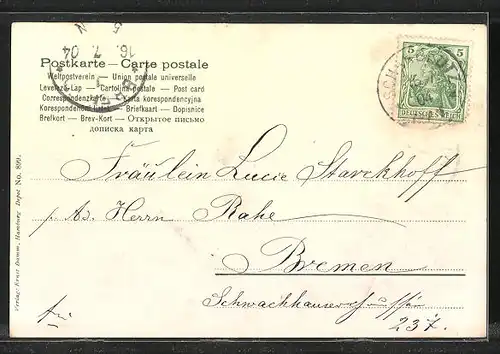 5 N
16. 7. 04
Postkarte — Carte postale
Weltpostverein — Union postale universelle
Levelező-Lap — Cartolina postale — Post card
Correspondenzkarte — Karta korespondencyjna
Korespondenční lístek — Briefkaart — Dopisnice
Brefkort — Brev-Kort — Открытое письмо
дописна карта
5 5
DEUTSCHES REICH
Fräulein Lucie Starckhoff
p. Ad. Herrn Rahe
Bremen
237.
Verlag: Ernst Damm, Hamburg Depot No. 899.